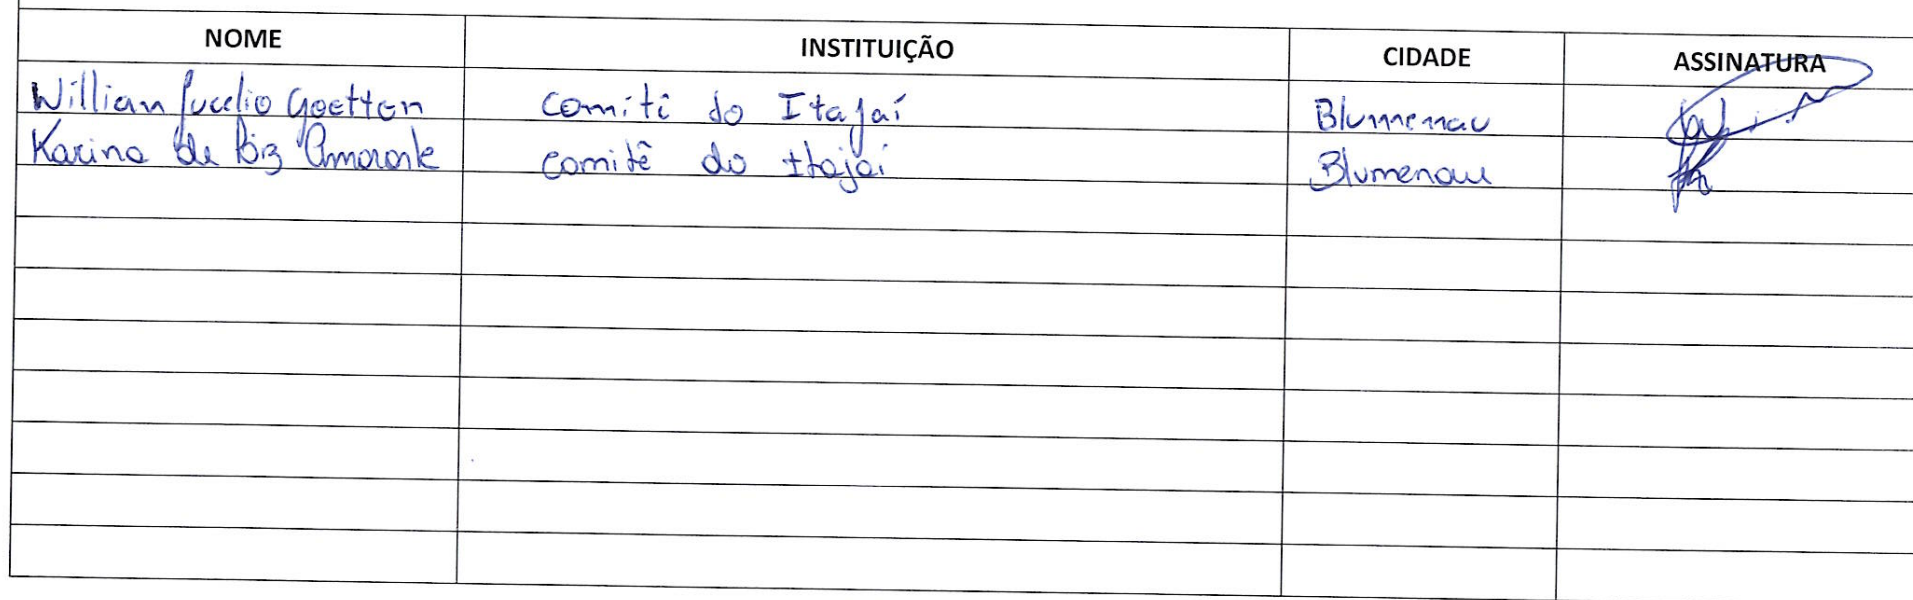 NOME INSTITUIÇÃO CIDADE ASSINATURA
Willian Jucelio Goetten Comitê do Itajaí Blumenau
Karina de Biz Amorante comitê do Itajaí Blumenau